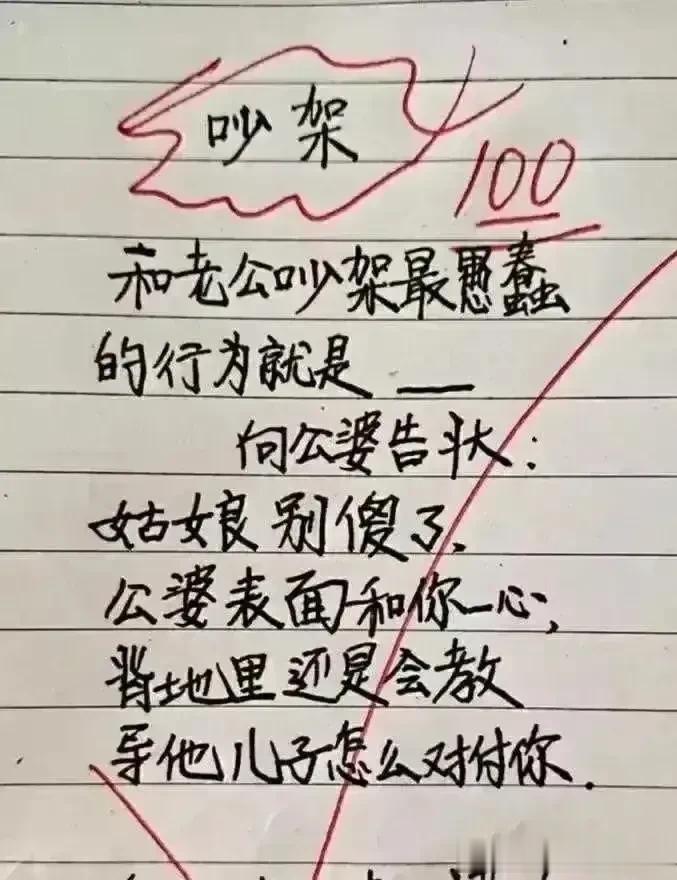 吵架
100
和老公吵架最愚蠢
的行为就是 __
向公婆告状:
姑娘别傻了,
公婆表面和你一心,
背地里还是会教
导他儿子怎么对付你.